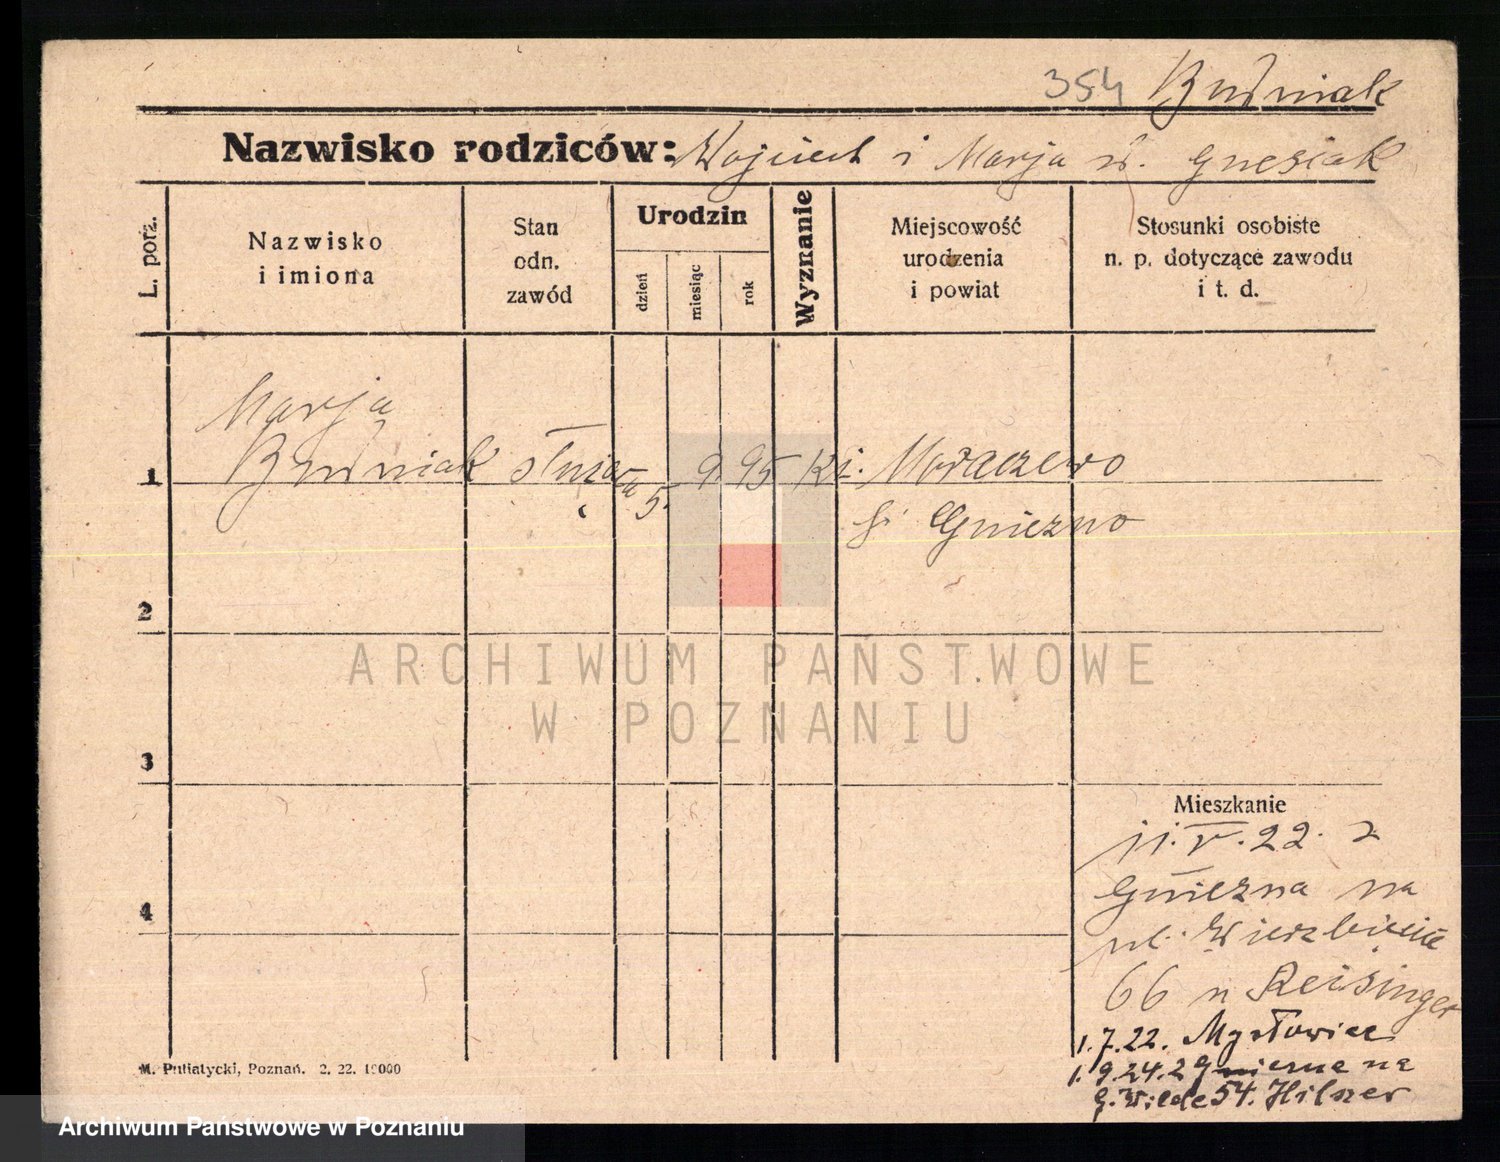 354 Budniak
Nazwisko rodziców: Wojciech i Marja
L. porz.
Nazwisko
i imiona
Stan
odn.
zawód
Urodzin
dzień
miesiąc
rok
Wyznanie
Miejscowość
urodzenia
i powiat
Stosunki osobiste
n. p. dotyczące zawodu
i t. d.
Marja
1 Budniak służąca 5. 9 95 kt.
Gniezno
2
ARCHIWUM PAŃSTWOWE
W POZNANIU
3
Mieszkanie
11.V.22. z
Gniezna na
4
ul. Wierzbięcice
66 u Reisinger
1.7.22. Mysłowice
1.9.24. z Gniezna na
G. Wilde 54. Hilszer
M. Putiatycki, Poznań. 2. 22. 10000
Archiwum Państwowe w Poznaniu